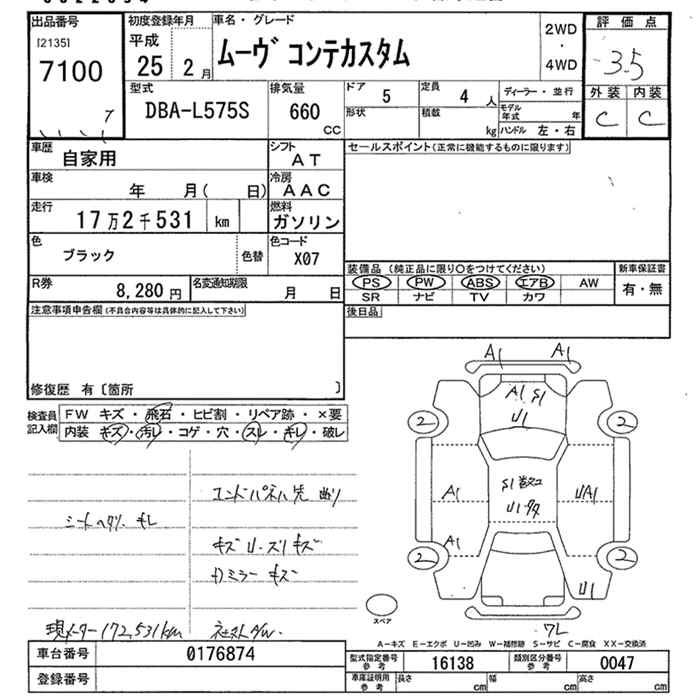 出品番号 初度登録年月 車名・グレード 2WD・4WD 評価点
[2135] 7100 平成 25 2月 ムーヴ コンテカスタム 3.5
外装 内装
C C
型式 排気量 ドア 定員 ディーラー・並行
DBA-L575S 660 CC 5 4人 モデル年式 年
形状 積載 kg ハンドル 左・右
車歴 自家用 シフト AT セールスポイント(正常に機能するものに限ります)
車検 年 月( 日) 冷房 AAC
走行 17万2千531 km 燃料 ガソリン
色 ブラック 色替 色コード X07
装備品 (純正品に限り○をつけてください) 新車保証書
PS PW ABS エアB AW 有・無
SR ナビ TV カワ
R券 8,280円 名変通知期限 月 日
後日品
注意事項申告欄(不具合内容等は具体的に記入して下さい)
修復歴 有〔箇所 〕
検査員記入欄 FW キズ・飛石・ヒビ割・リペア跡・×要
内装 キズ・汚レ・コゲ・穴・スレ・キレ・破レ
A1 A1
A1 S1
U1
2 2
S1
A1 U1 UA1
A1
2 2
U1
スペア
7L
シートヘタリ キレ
キズ U・スリキズ
ミラー キズ
現メーター172,531km
A-キズ E-エクボ U-凹み W-補修跡 S-サビ C-腐食 XX-交換済
車台番号 0176874 型式指定番号 参考 16138 類別区分番号 参考 0047
登録番号 車庫証明用 参考 長さ cm 幅 cm 高さ cm